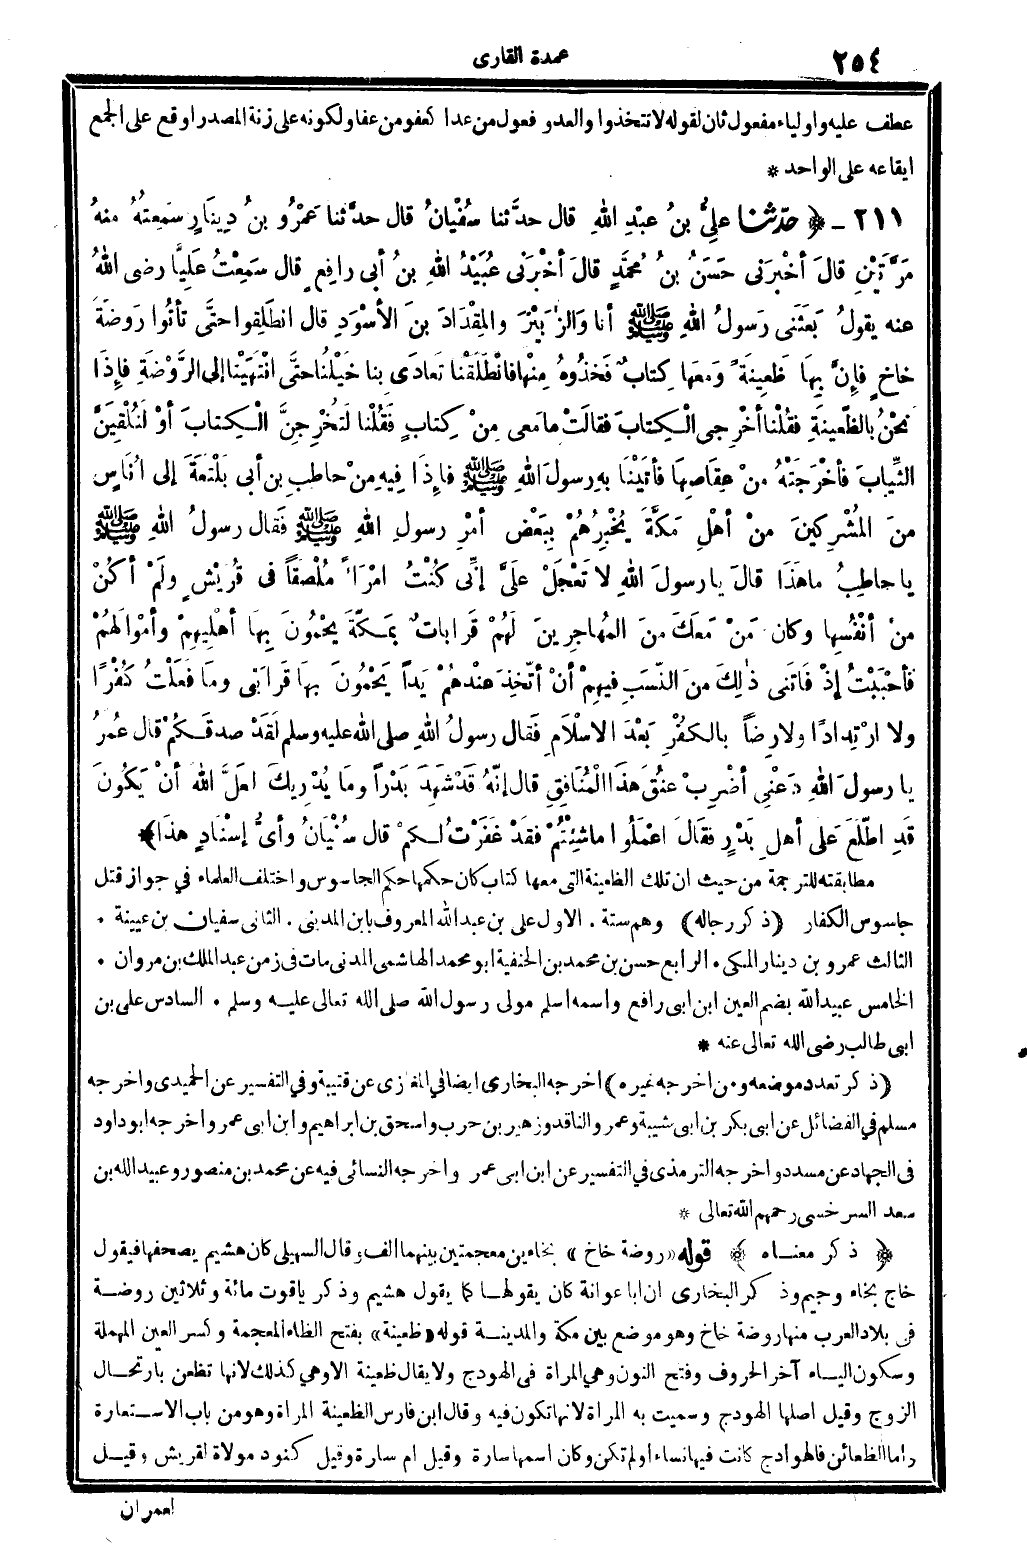 ٢٥٤
عمدة القارى
عطف عليه واولياء مفعول ثان لقوله لا تتخذوا والعدو فعول من عدا كعفو من عفا ولكونه على زنة المصدر اوقع على الجمع
ايقاعه على الواحد *
٢١١ - ﴿ حدّثنا عَلِيُّ بنُ عبْدِ اللهِ قال حدَّثنا سُفْيانُ قال حدَّثنا عَمْرُو بنُ دِينارٍ سَمِعتُهُ منهُ
مَرَّتَيْنِ قالَ أخْبرَنى حَسَنُ بنُ مُحمَّدٍ قالَ أخْبرَنى عُبَيْدُ اللهِ بنُ أبى رافِعٍ قال سَمِعْتُ علَيًّا رضى اللهُ
عنه يقولُ بَعَثَنى رَسولُ اللهِ ﷺ أنا والزُّبَيْرَ والمِقْدَادَ بنَ الأسْوَدِ قال انطَلِقوا حتَّى تأتُوا رَوضَةَ
خاخٍ فإنَّ بِها ظَعِينَةً ومَعَها كِتابٌ فَخذُوهُ مِنْها فانْطَلَقْنا تَعادَى بنا خَيْلُنا حتَّى انْتَهَيْنا إلى الرَّوْضَةِ فإِذَا
نحْنُ بالظَّعِينَةِ فقُلْنا أخْرِجى الْكِتابَ فقالَتْ ما مَعى مِنْ كِتابٍ فَقُلْنا لَتُخْرِجِنَّ الْكِتابَ أوْ لَنُلْقِيَنَّ
الثِّيابَ فأخْرَجَتْهُ مِنْ عِقاصِها فأتَيْنَا بهِ رسولَ اللهِ ﷺ فإذَا فِيهِ مِنْ حاطِبِ بن أبى بَلْتَعَةَ إلى أُناسٍ
منَ المُشْرِكينَ مِنْ أهْلِ مَكَّةَ يُخْبِرُهُمْ بِبَعْضِ أمْرِ رسولِ اللهِ ﷺ فَقال رسولُ اللهِ ﷺ
يا حاطِبُ ما هَذَا قالَ يا رسولَ اللهِ لا تَعْجَلْ علَىَّ إنِّى كُنْتُ امْرَأً مُلْصَقاً فى قُرَيْشٍ ولَمْ أكُنْ
منْ أنْفُسِها وكان مَنْ مَعَكَ منَ المُهاجِرِينَ لَهُمْ قَراباتٌ بمَكّةَ يَحْمُونَ بِها أهْلِيهِمْ وأمْوالَهُمْ
فأحْبَبْتُ إذْ فاتَنى ذٰلِكَ منَ النّسَبِ فيهِمْ أنْ أتّخِذَ عنْدهُمْ يَداً يَحْمُونَ بها قَرابَتى وما فعَلْتُ كُفْرًا
ولا ارْتِدادًا ولا رِضاً بالكفْرِ بَعْدَ الاسْلَامِ فَقال رسولُ اللهِ صلى الله عليه وسلم لَقَدْ صدقَكُمْ قال عُمَرُ
يا رسولَ اللهِ دَعْنِى أضْرِبْ عنُقَ هذَا الْمُنافِقِ قال إنّهُ قَدْ شَهِدَ بَدْراً وما يُدْرِيكَ لعَلَّ اللهَ أنْ يَكُونَ
قَدِ اطّلَعَ عَلى أهلِ بَدْرٍ فقالَ اعْمَلُوا ما شِئْتُمْ فقَدْ غَفَرْتُ لكمْ قال سُفْيانُ وأىُّ إسْنَادٍ هذَا ﴾ *
مطابقته للترجمة من حيث ان تلك الظعينة التى معها كتاب كان حكمها حكم الجاسوس واختلف العلماء في جواز قتل
جاسوس الكفار (ذكر رجاله) وهم ستة . الاول على بن عبد الله المعروف بابن المدينى . الثانى سفيان بن عيينة .
الثالث عمرو بن دينار المكى . الرابع حسن بن محمد بن الحنفية ابو محمد الهاشمى المدنى مات فى زمن عبد الملك بن مروان .
الخامس عبيد الله بضم العين ابن ابى رافع واسمه اسلم مولى رسول الله صلى الله تعالى عليه وسلم . السادس على بن
ابى طالب رضى الله تعالى عنه *
(ذكر تعدد موضعه ومن اخرجه غيره) اخرجه البخارى ايضا في المغازى عن قتيبة وفي التفسير عن الحميدى واخرجه
مسلم في الفضائل عن ابى بكر بن ابى شيبة وعمرو الناقد وزهير بن حرب واسحق بن ابراهيم وابن ابى عمر واخرجه ابو داود
فى الجهاد عن مسدد واخرجه الترمذى في التفسير عن ابن ابى عمر واخرجه النسائى فيه عن محمد بن منصور وعبيد الله بن
سعد السرخسى رحمهم الله تعالى *
﴿ ذكر معناه ﴾ قوله «روضة خاخ» بخاءين معجمتين بينهما الف وقال السهيلى كان هشيم يصحفها فيقول
خاج بخاء وجيم وذكر البخارى ان ابا عوانة كان يقولها كما يقول هشيم وذكر ياقوت مائة وثلاثين روضة
فى بلاد العرب منها روضة خاخ وهو موضع بين مكة والمدينة قوله «ظعينة» بفتح الظاء المعجمة وكسر العين المهملة
وسكون الياء آخر الحروف وفتح النون وهي المرأة فى الهودج ولا يقال ظعينة الا وهي كذلك لانها تظعن بارتحال
الزوج وقيل اصلها الهودج وسميت به المرأة لانها تكون فيه وقال ابن فارس الظعينة المرأة وهو من باب الاستعارة
واما الظعائن فالهوادج كانت فيها نساء او لم تكن وكان اسمها سارة وقيل ام سارة وقيل كنود مولاة لقريش وقيل
لعمران